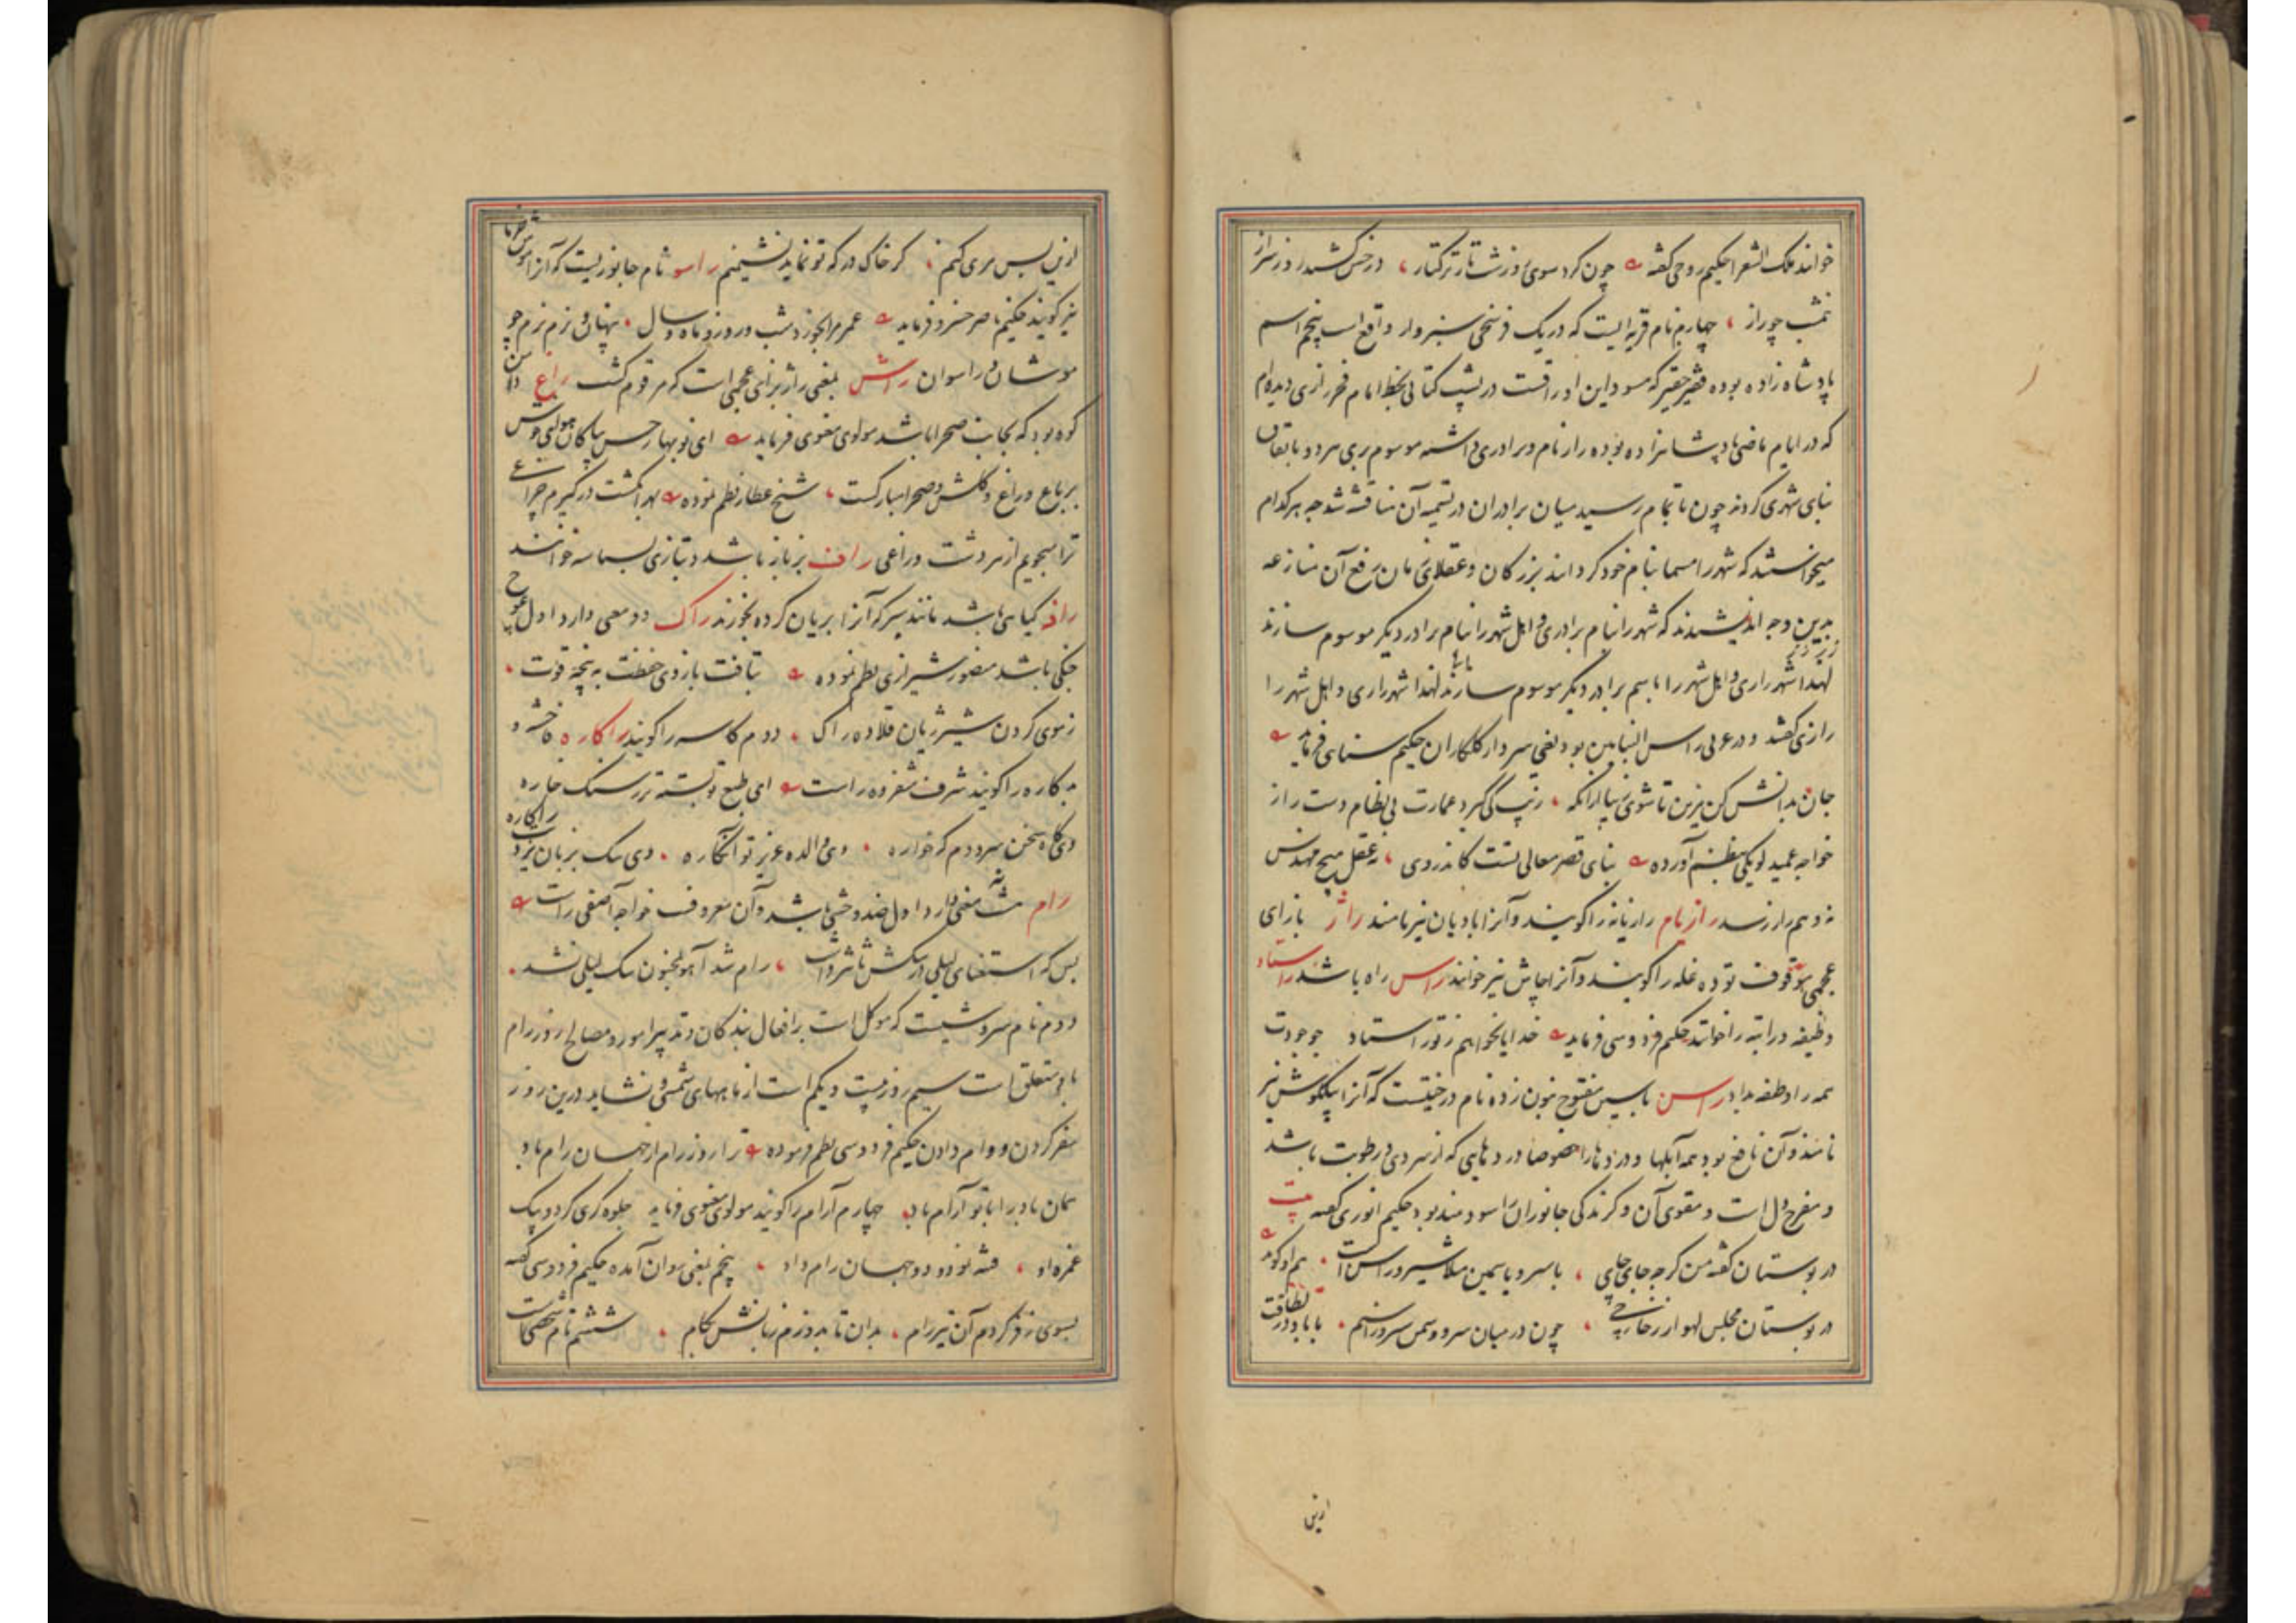 خوانند ملک الشعرا حکیم روحی گفته چون کرد سوی روز شب تار ترکتار در خس کشید روز سر از
شب چو راز چهارم نام قریه ایست که در یک فرسخی سبزوار واقع است پنجم اسم
پادشاه زاده بوده فقیر حقیر که مسود این اوراقست در پشت کتابی بخط امام فخر رازی دیده ام
که در ایام ماضی پادشاهزاده بوده راز نام و برادری داشته موسوم بری هر دو باتفاق
بنای شهری کردند چون باتمام رسید میان برادران در تسمیه آن مناقشه شد چه هر کدام
میخواستند که شهر را مسما بنام خود گردانند بزرگان و عقلای زمان رفع آن منازعه
بدین وجه اندیشیدند که شهر را بنام برادری و اهل شهر را بنام برادر دیگر موسوم سازند
لهذا شهر را ری و اهل شهر را باسم برادر دیگر موسوم سازند لهذا شهر را ری و اهل شهر را
رازی گفتند و در عربی راس البنایین بود یعنی سردار گلکاران حکیم سنائی فرماید
جان بدانش کن مزین تا شوی زیبا ازانکه زیب کی گیرد عمارت بی نظام دست راز
خواجه عمید لویکی بنظم آورده بنای قصر معالی تست کاندر وی نه عقل هیچ مهندس
نه وهم راز رسد رازنام رازیانه را گویند و آنرا بادیان نیز نامند راژ بازای
عجمی موقوف توده غله را گویند و آنرا چاش نیز خوانند راس راه باشد راستاد
وظیفه و راتبه را خوانند حکیم فردوسی فرماید خدایا نخواهم ز تو راستاد چو جودت
همه را وظیفه بداد راسن با سین مفتوح بنون زده نام درختیست که آنرا پیلگوش نیز
نامند و آن نافع بود همه آبلها و دردها را خصوصا دردهایی که از سردی و رطوبت باشد
و مفرح دل است و مقوی آن و گزندگی جانوران را سودمند بود حکیم انوری گفته بیت
در بوستان گفته من گرچه جای جای با سرو و یاسمین مثلا سیر و راسن است هم او گوید
در بوستان مجلس لهو از چون در میان سرو و سمن سیر و راسنم
ازین
ازین پس مری کنم گر خاک در که تو نماید نشیمنم راسو نام جانوریست که آنرا موش خرما
نیز گویند حکیم ناصر خسرو فرماید عمر مرا بخورد شب و روز و ماه و سال پنهان و نرم نرم چو
موشان و راسوان راش بمعنی راژ بزای عجمی است که مرقوم گشت راغ دامن
کوه بود که بجانب صحرا باشد مولوی معنوی فرماید ای نوبهار حسن بیا کان هوای خوش
بر باغ و راغ و گلشن و صحرا مبارکست شیخ عطار نظم نموده بهر انگشت درگیرم چراغی
ترا بجویم از هر دشت و راغی راف بزباز باشد و بتازی بسباسه خوانند
رافه گیاهی باشد مانند سیر که آنرا بریان کرده بخورند راک دو معنی دارد اول قوچ
جنگی باشد منصور شیرازی نظم نموده بتافت بازوی حفظت به پنجه قوت
ز موی گردن شیر ژیان قلاده راک دوم کاسه را گویند راکاره فاحشه و
بدکاره را گویند شرف شفروه راست ای طبع تو بسته تر ز سنگ خاره
وی گاه سخن سرد دم گهواره وی والده عزیز تو آنکاره وی سک بزبان یزد راکاره
رام شش معنی دارد اول ضد وحشی باشد و آن معروف خواجه آصفی راست
بس که استغنای لیلی از سکش تأثیر داشت رام شد آهو بمجنون سک لیلی نشد
دوم نام سروشیست که موکل است بر افعال بندگان و تدبیر امور و مصالح روز رام
باو متعلق است سیم روز بیست و یکم است از ماههای شمسی و نشاید درین روز
سفر کردن و وام دادن حکیم فردوسی نظم فرموده ترا روز رام از جهان رام باد
همان باد را با تو آرام باد چهارم آرام را گویند مولوی معنوی فرماید جلوه گری کرد و بیک
غمزه او فتنه نو در دو جهان رام داد پنجم بمعنی روان آمده حکیم فردوسی گفته
بسوی زفر کردم آن تیر رام بدان تا بدوزم زبانش بکام ششم نام شخصی است